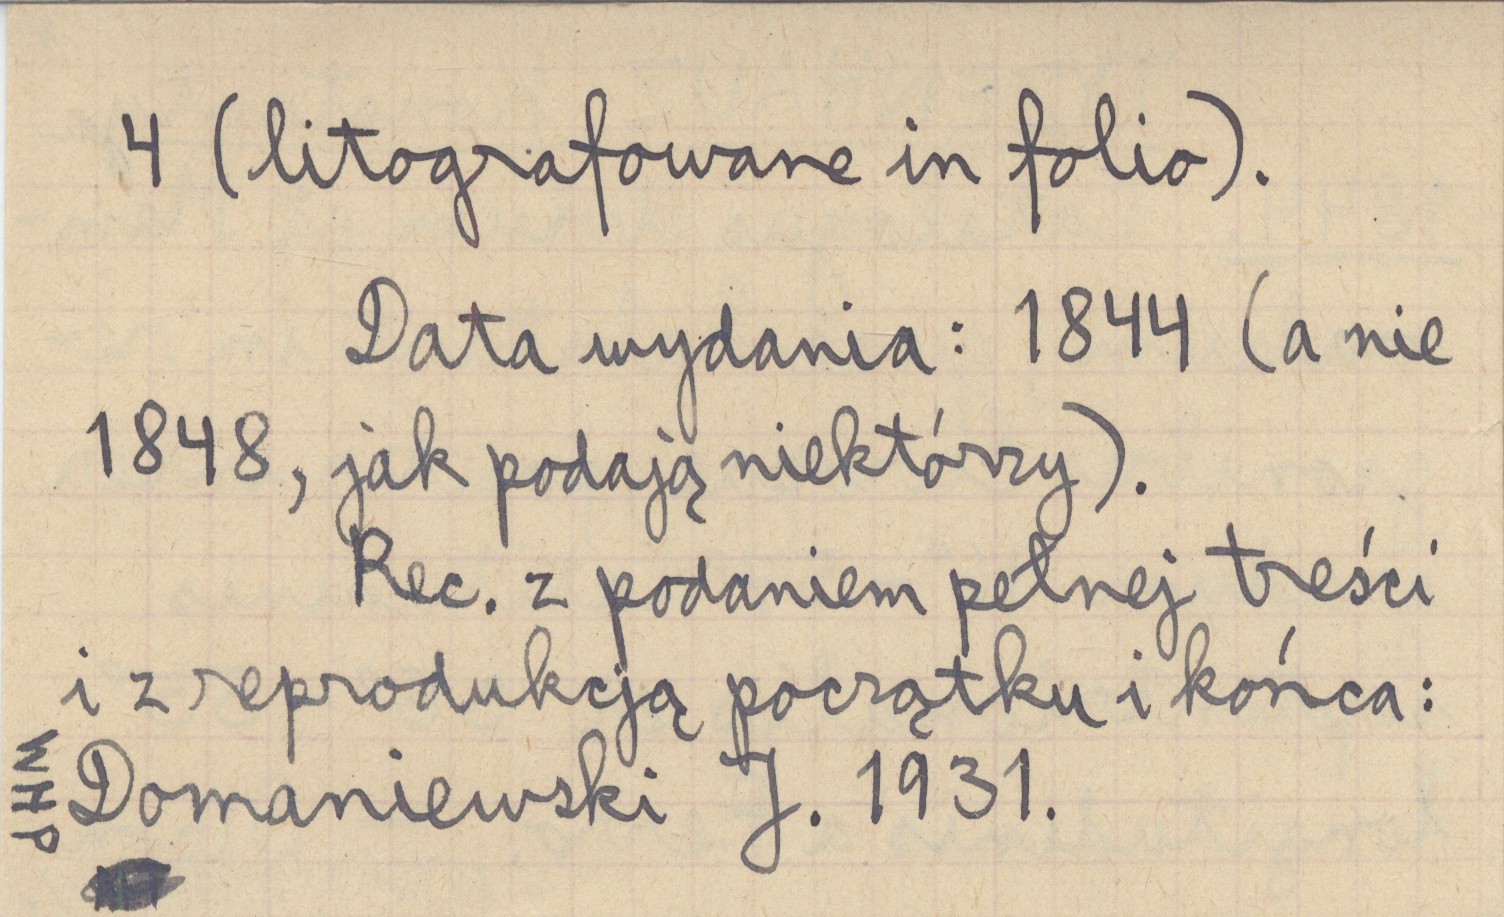 4 (litografowane in folio).
Data wydania: 1844 (a nie
1848, jak podają niektórzy).
Rec. z podaniem pełnej treści
i z reprodukcją początku i końca:
Domaniewski J. 1931.
WHP